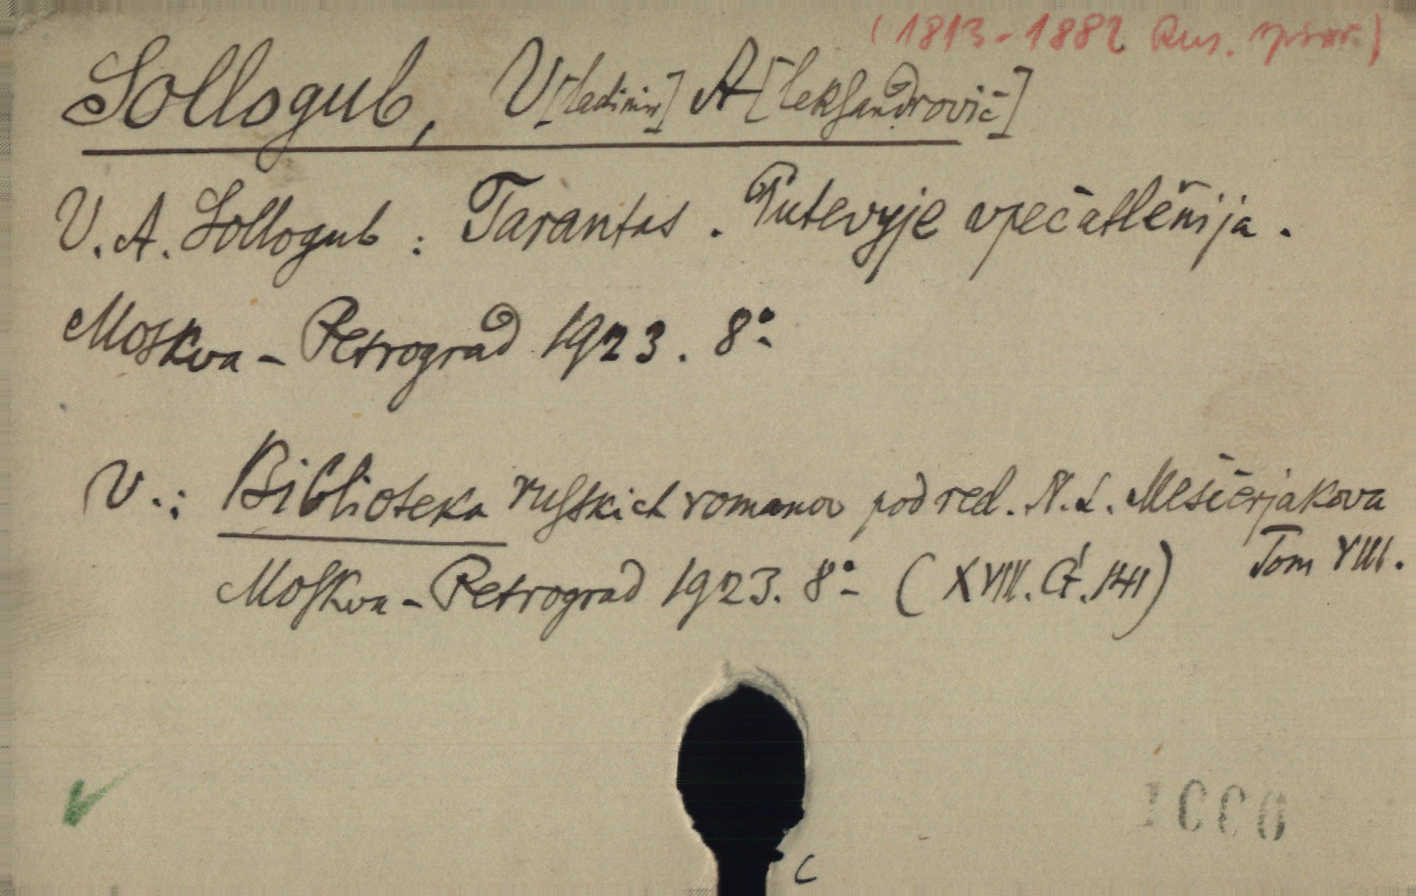 (1813-1882 Rus. spisov.)
Sollogub, V[ladimir] A[leksandrovič]
V. A. Sollogub: Tarantas. Putevyje vpečatlěnija.
Moskva - Petrograd 1923. 8°
V.: Biblioteka russkich romanov pod red. N. L. Meščerjakova
Tom VIII.
Moskva - Petrograd 1923. 8° (XVIII. Čt. 141)
C